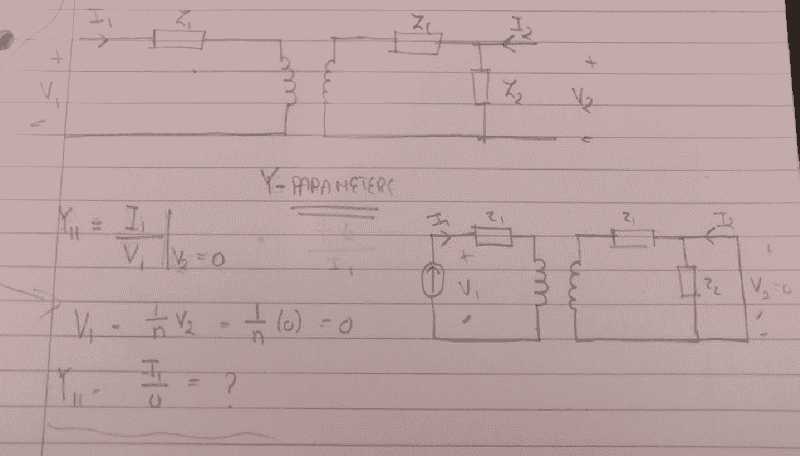 I₁ Z₁ Z₁ I₂
+ V₁ -
Z₂
+ V₂ -
Y-PARAMETERS
Y₁₁ = I₁/V₁ | V₂=0
I₁ z₁ z₁ I₂
+ V₁ -
z₂
+ V₂=0 -
V₁ = 1/n V₂ = 1/n (0) = 0
Y₁₁ = I₁/0 = ?